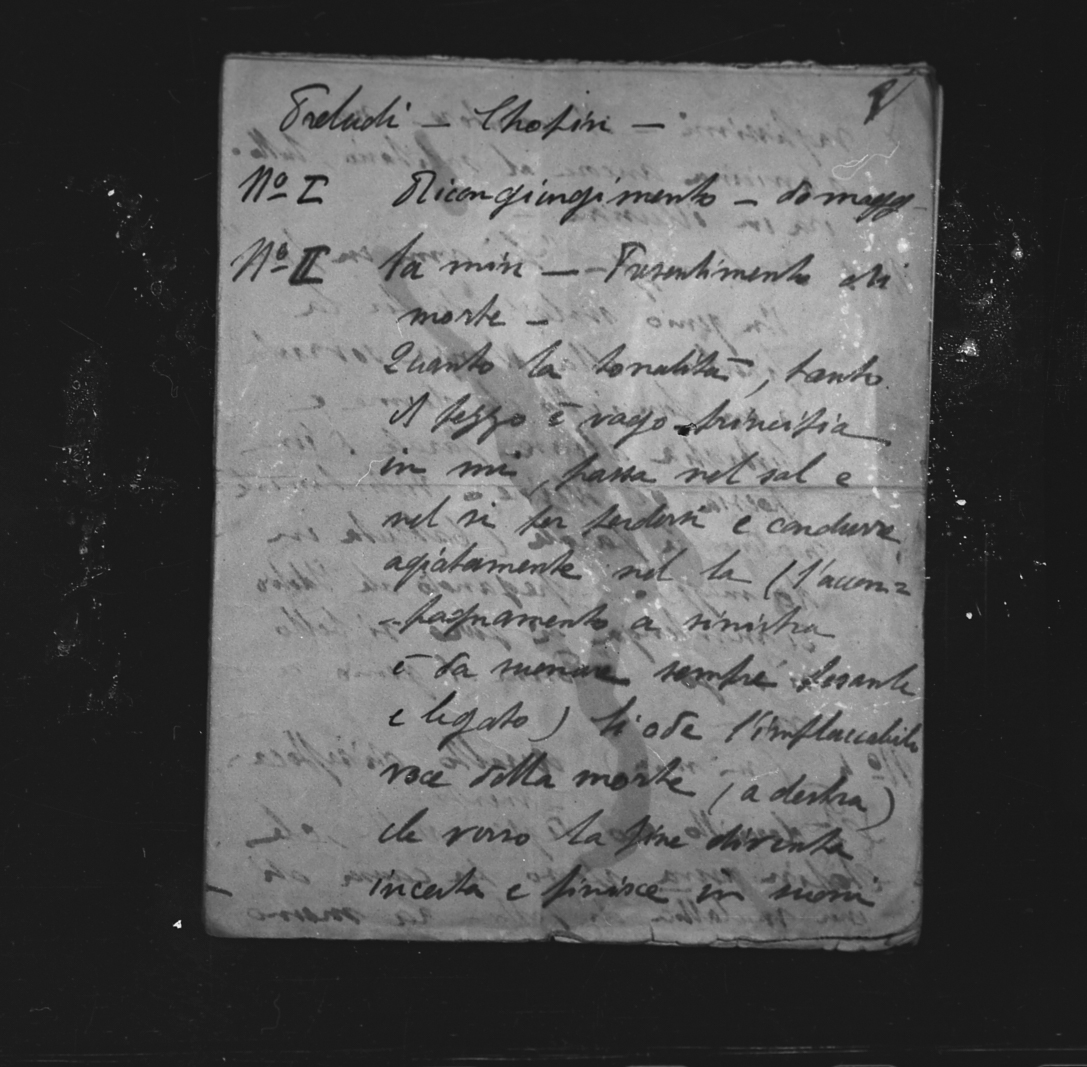 Preludi — Chopin —
No I Ricongiungimento — do magg
No II la min — Presentimento di
morte —
Quanto la tonalità, tanto
il pezzo è vago. principia
in mi, passa nel sol e
nel si per perdersi e condurre
agiatamente nel la (l'accom=
-pagnamento a sinistra
è da suonare sempre pesante
e legato) Si ode l'implaccabile
voce della morte (a destra)
che verso la fine diventa
incerta e finisce in suoni